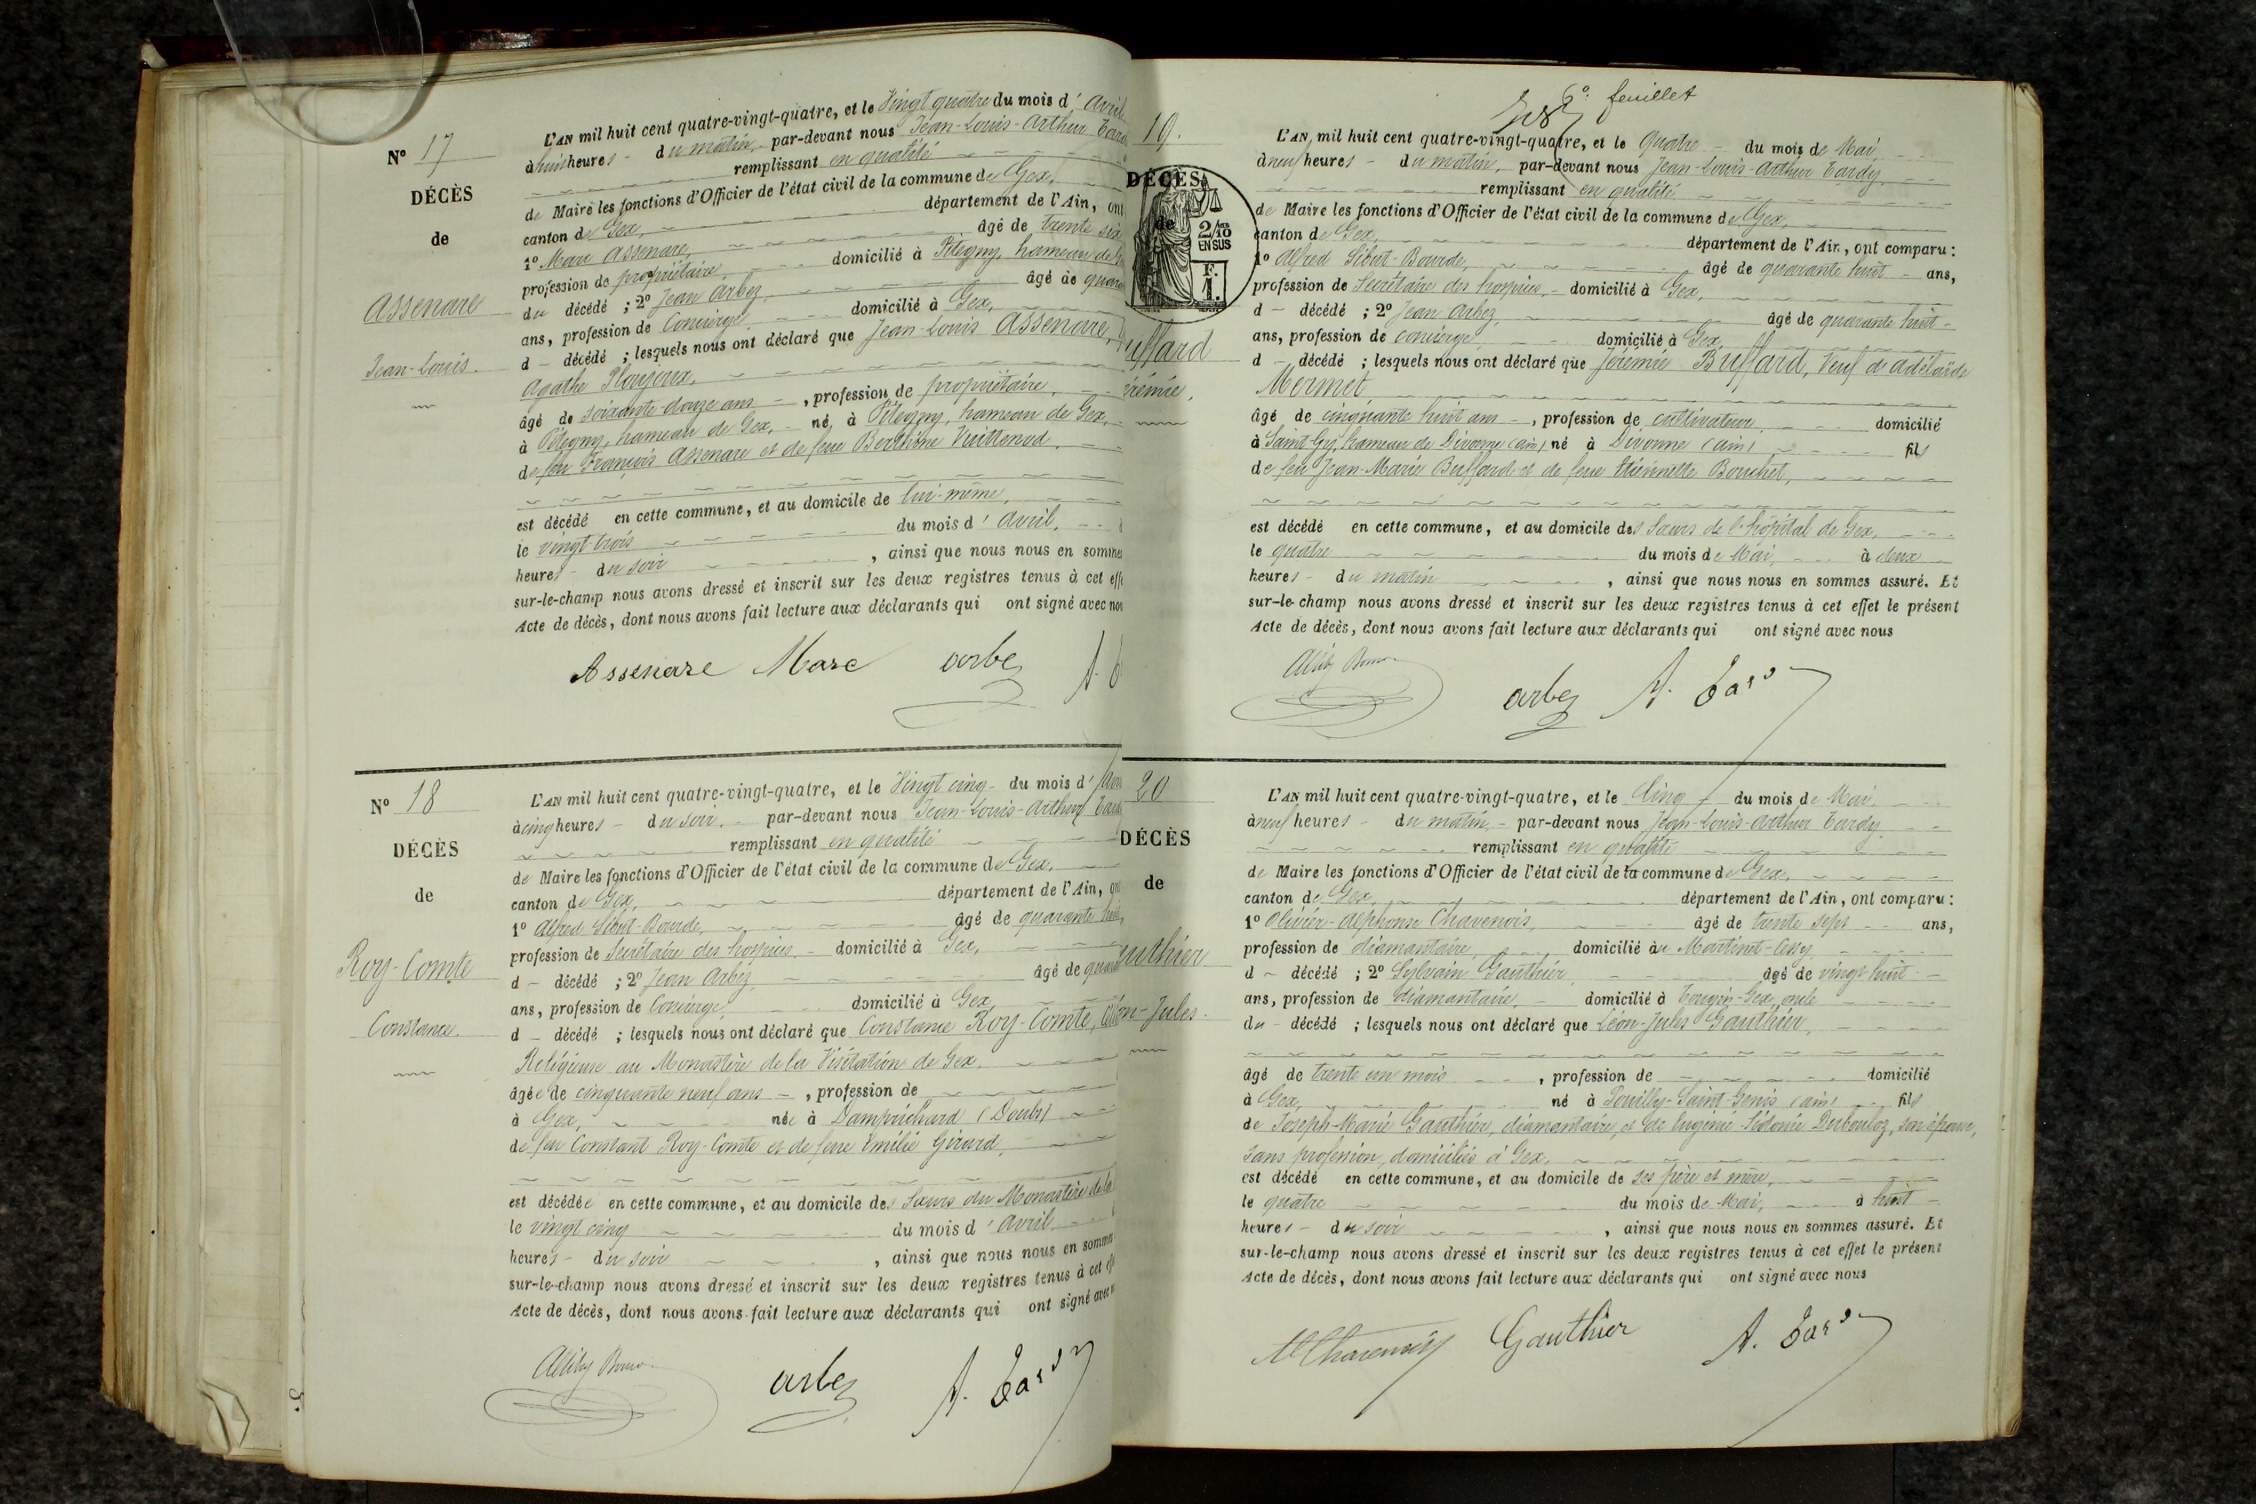 N° 17
DÉCÈS
de
Assenare
Jean-Louis.
L'AN mil huit cent quatre-vingt-quatre, et le Vingt quatre du mois d'Avril
à huit heures du matin, par-devant nous Jean-Louis-Arthur Tard
remplissant en qualité
de Maire les fonctions d'Officier de l'état civil de la commune de Gex,
canton de Gex, département de l'Ain, ont
1° Marc Assenare, âgé de trente six
profession de propriétaire, domicilié à Pitegny, hameau de
du décédé ; 2° Jean Arbez, âgé de quara
ans, profession de Concierge, domicilié à Gex,
d décédé ; lesquels nous ont déclaré que Jean-Louis Assenare,
Agathe
âgé de soixante douze ans, profession de propriétaire,
à Pitegny, hameau de Gex, né à Pitegny, hameau de Gex,
de feu François Assenare et de feue
est décédé en cette commune, et au domicile de lui-même,
le vingt-trois du mois d'Avril,
heures du soir, ainsi que nous nous en sommes
sur-le-champ nous avons dressé et inscrit sur les deux registres tenus à cet eff
Acte de décès, dont nous avons fait lecture aux déclarants qui ont signé avec nou
Assenare Marc arbez A.
N° 18
DÉCÈS
de
Roy-Comte
Constance.
L'AN mil huit cent quatre-vingt-quatre, et le Vingt cinq du mois d'Avr
à cinq heures du soir, par-devant nous Jean-Louis-Arthur Tard
remplissant en qualité
de Maire les fonctions d'Officier de l'état civil de la commune de Gex,
canton de Gex, département de l'Ain, ont
1° Alfred Bourde, âgé de quarante huit,
profession de Secrétaire des hospices, domicilié à Gex,
d décédé ; 2° Jean Arbez, âgé de quara
ans, profession de Concierge, domicilié à Gex,
d décédé ; lesquels nous ont déclaré que Constance Roy-Comte,
Religieuse au Monastère de la Visitation de Gex.
âgée de cinquante neuf ans, profession de
à Gex, née à Damprichard (Doubs)
de feu Constant Roy-Comte et de feue Emélie Girard,
est décédée en cette commune, et au domicile des Sœurs du Monastère de la
le vingt cinq du mois d'Avril
heures du soir, ainsi que nous nous en somme
sur-le-champ nous avons dressé et inscrit sur les deux registres tenus à cet eff
Acte de décès, dont nous avons fait lecture aux déclarants qui ont signé avec n
arbez A. Tardy
6° feuillet
19.
DÉCÈS
de
2/10 EN SUS
F. 1.
uffard
érémie,
L'AN, mil huit cent quatre-vingt-quatre, et le Quatre du mois de Mai,
à neuf heures du matin, par-devant nous Jean-Louis-Arthur Tardy
remplissant en qualité
de Maire les fonctions d'Officier de l'état civil de la commune de Gex,
canton de Gex, département de l'Ain, ont comparu :
1° Alfred Bourde, âgé de quarante huit ans,
profession de Secrétaire des hospices, domicilié à Gex,
d décédé ; 2° Jean Arbez, âgé de quarante huit
ans, profession de concierge, domicilié à Gex,
d décédé ; lesquels nous ont déclaré que Jérémie Buffard, Veuf de Adélaïde
Mermet
âgé de cinquante huit ans, profession de cultivateur domicilié
à Saint-Gix, hameau de Divonne (Ain) né à Divonne (Ain) fils
de feu Jean-Marie Buffard et de feue Etiennette Bouchet,
est décédé en cette commune, et au domicile des Sœurs de l'hôpital de Gex,
le quatre du mois de Mai, à deux
heures du matin, ainsi que nous nous en sommes assuré. Et
sur-le-champ nous avons dressé et inscrit sur les deux registres tenus à cet effet le présent
Acte de décès, dont nous avons fait lecture aux déclarants qui ont signé avec nous
arbez A. Tardy
20
DÉCÈS
de
authier
on-Jules.
L'AN mil huit cent quatre-vingt-quatre, et le Cinq du mois de Mai,
à neuf heures du matin, par-devant nous Jean-Louis-Arthur Tardy
remplissant en qualité
de Maire les fonctions d'Officier de l'état civil de la commune de Gex,
canton de Gex, département de l'Ain, ont comparu :
1° Olivier-Alphonse Chavenois, âgé de trente sept ans,
profession de diamantaire, domicilié au Martinet-Cessy,
d décédé ; 2° Sylvain Gauthier, âgé de vingt huit
ans, profession de diamantaire, domicilié à Tougin-Gex, oncle
du décédé ; lesquels nous ont déclaré que Léon-Jules Gauthier,
âgé de trente un mois, profession de domicilié
à Gex, né à Pouilly-Saint-Genis (Ain) fils
de Joseph-Marie Gauthier, diamantaire, et de Eugénie Dubouloz, son épouse,
sans profession, domiciliés à Gex,
est décédé en cette commune, et au domicile de ses père et mère,
le quatre du mois de Mai, à huit
heures du soir, ainsi que nous nous en sommes assuré. Et
sur-le-champ nous avons dressé et inscrit sur les deux registres tenus à cet effet le présent
Acte de décès, dont nous avons fait lecture aux déclarants qui ont signé avec nous
Gauthier A. Tardy